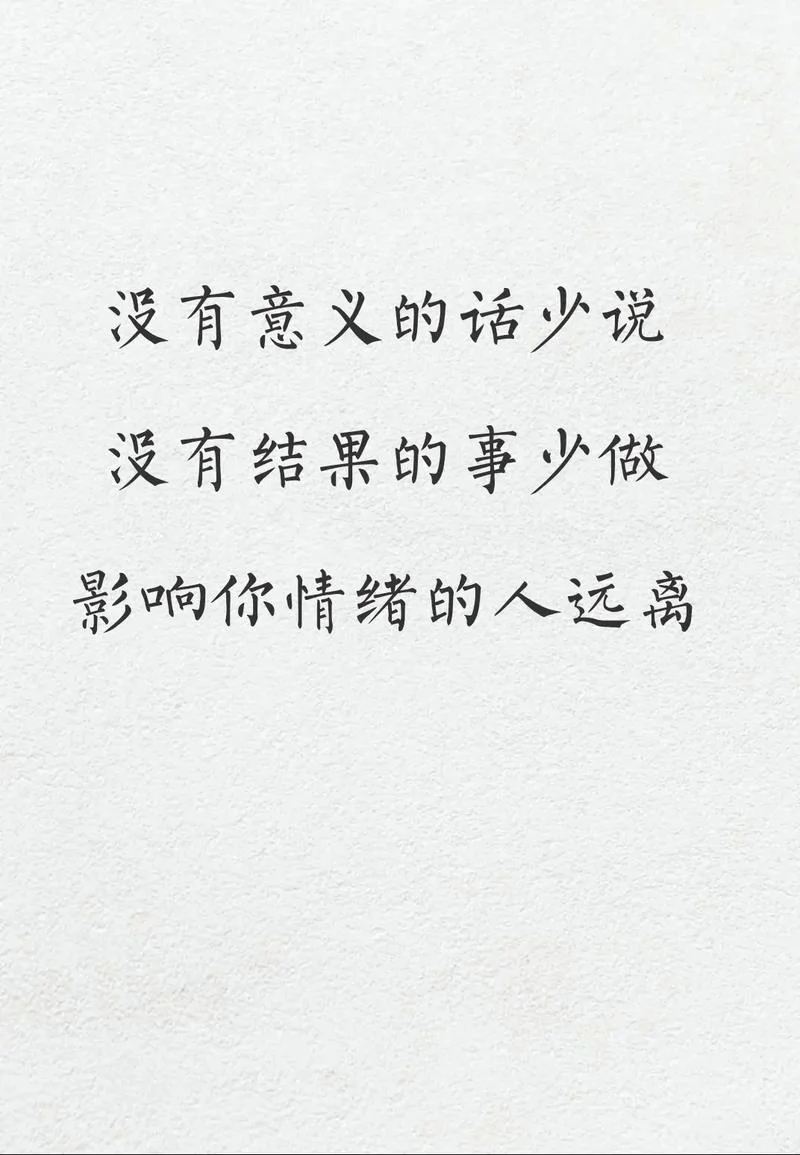 没有意义的话少说
没有结果的事少做
影响你情绪的人远离